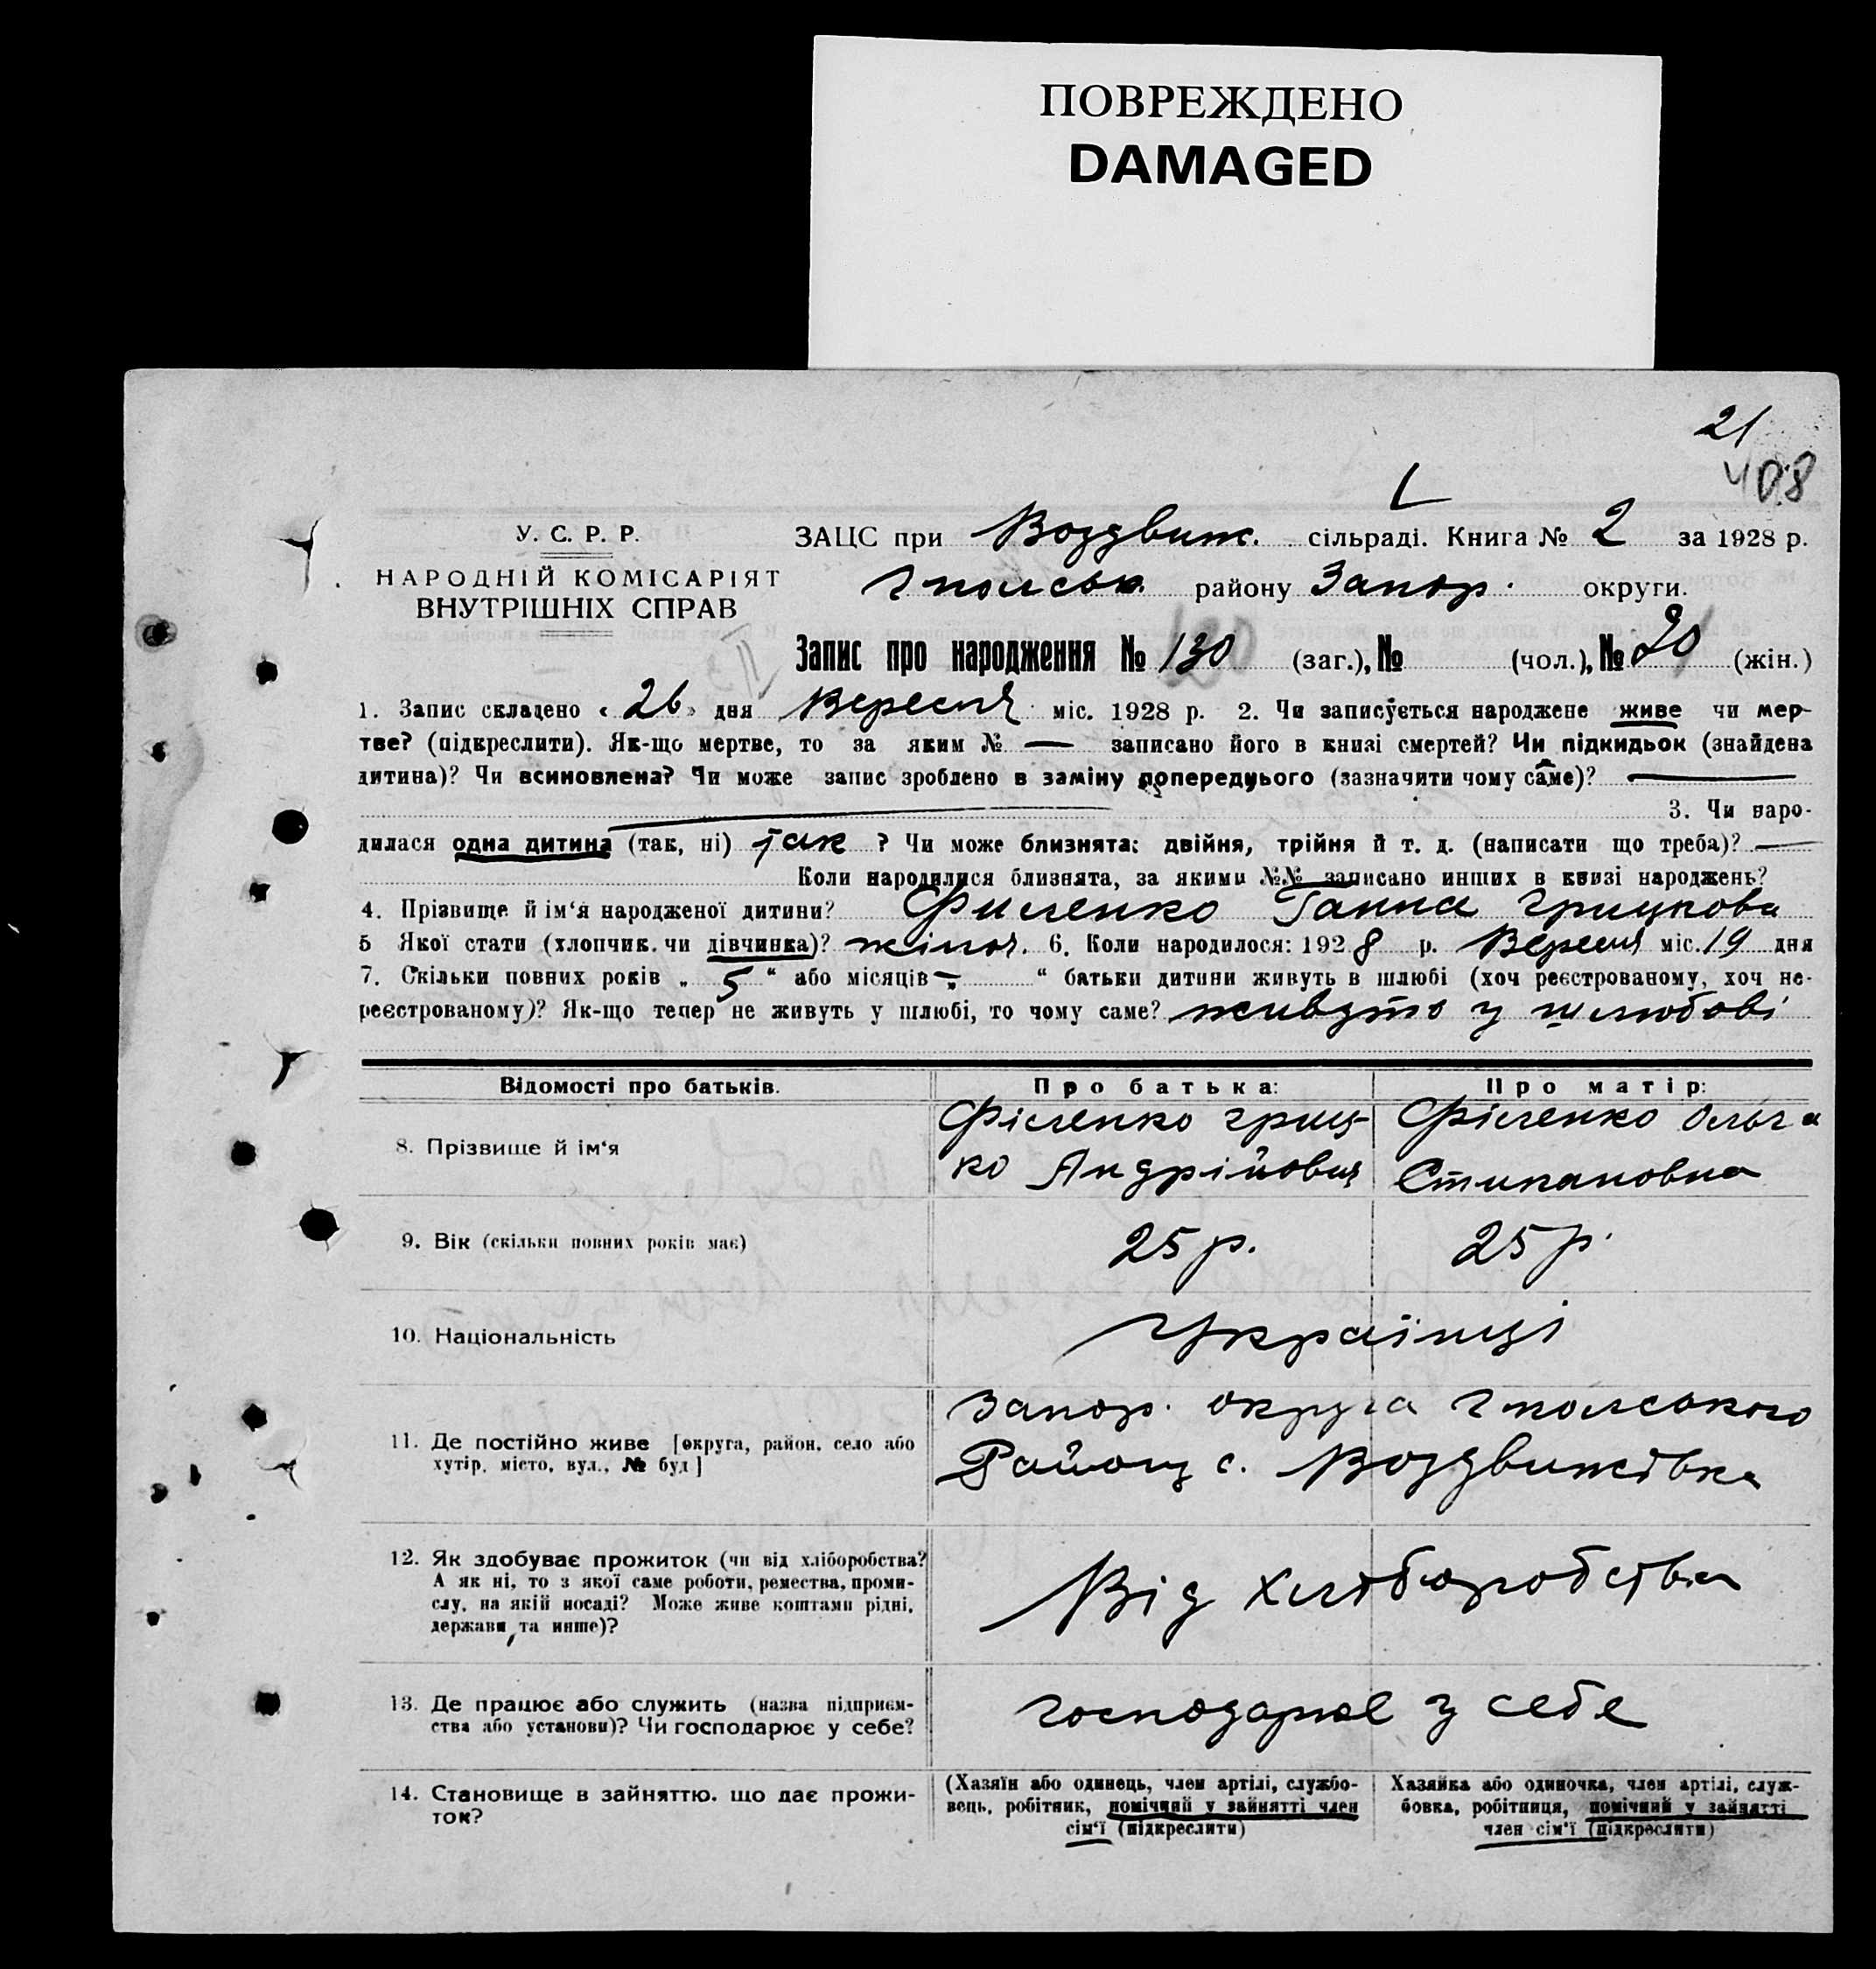 ПОВРЕЖДЕНО
DAMAGED
21
408
У. С. Р. Р.
НАРОДНІЙ КОМІСАРІЯТ
ВНУТРІШНІХ СПРАВ
ЗАЦС при Воздвиж. сільраді. Книга № 2 за 1928 р.
Гпольськ. району Запор. округи.
Запис про народження № 130 (заг.), № (чол.), № (жін.)
1. Запис складено « 26 » дня Вересня міс. 1928 р. 2. Чи записується народжене живе чи мер-
тве? (підкреслити). Як-що мертве, то за яким № — записано його в книзі смертей? Чи підкидьок (знайдена
дитина)? Чи всиновлена? Чи може запис зроблено в заміну попереднього (зазначити чому саме)? —
3. Чи наро-
дилася одна дитина (так, ні) так ? Чи може близнята: двійня, трійня й т. д. (написати що треба)? —
Коли народилися близнята, за якими №№ записано инших в книзі народжень?
4. Прізвище й ім‘я народженої дитини? Филенко Ганна Грицкова
5 Якої стати (хлопчик. чи дівчинка)? жіноч. 6. Коли народилося: 1928 р. Вересня міс. 19 дня
7. Скільки повних років „ 5 “ або місяців „ — “ батьки дитини живуть в шлюбі (хоч реєстрованому, хоч не-
реєстрованому)? Як-що тепер не живуть у шлюбі, то чому саме? живуть у шлюбові
Відомості про батьків. Про батька: Про матір:
8. Прізвище й ім‘я
Філенко Гриц-
ко Андрійович
Філенко Ольга
Стипановна
9. Вік (скільки повних років має) 25 р. 25 р.
10. Національність Українці
11. Де постійно живе [округа, район, село або
хутір, місто, вул., № буд]
Запор. округа Гпольського
Району с. Воздвижівка
12. Як здобуває прожиток (чи від хліборобства?
А як ні, то з якої саме роботи, ремества, проми-
слу, на якій посаді? Може живе коштами рідні,
держави, та инше)?
Від хліборобства
13. Де працює або служить (назва підприєм-
ства або установи)? Чи господарює у себе?
господарює у себе
14. Становище в зайняттю. що дає прожи-
ток?
(Хазяїн або одинець, член артілі, службо-
вець, робітник, помічний у зайнятті член
сім‘ї (підкреслити)
Хазяйка або одиночка, член артілі, служ-
бовка, робітниця, помічний у зайнятті
член сім‘ї (підкреслити)